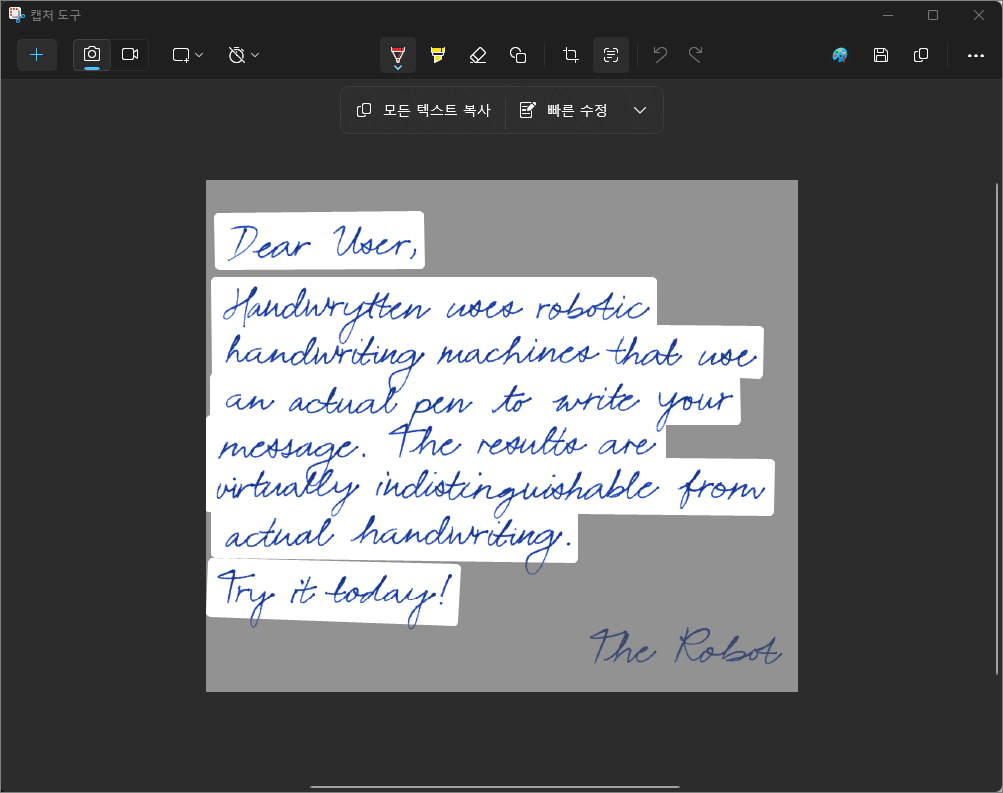 캡처 도구
모든 텍스트 복사 빠른 수정
Dear User,
Handwrytten uses robotic
handwriting machines that use
an actual pen to write your
message. The results are
virtually indistinguishable from
actual handwriting.
Try it today!
The Robot